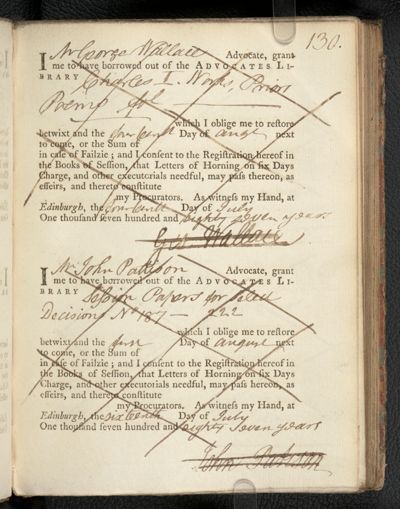 130.
I Mr George Wallace Advocate, grant
me to have borrowed out of the ADVOCATES LI-
BRARY Charles I. Works, Priors
Poems
which I oblige me to reſtore
betwixt and the fourteenth Day of augt next
to come, or the Sum of
in caſe of Failzie; and I conſent to the Regiſtration hereof in
the Books of Seſſion, that Letters of Horning on ſix Days
Charge, and other executorials needful, may paſs thereon, as
effeirs, and thereto conſtitute
my Procurators. As witneſs my Hand, at
Edinburgh, the fourteenth Day of July
One thouſand ſeven hundred and eighty seven years
Geo Wallace
I Mr John Pattison Advocate, grant
me to have borrowed out of the ADVOCATES LI-
BRARY Session Papers for Select
Decisions No 187 — 222
which I oblige me to reſtore
betwixt and the first Day of august next
to come, or the Sum of
in caſe of Failzie; and I conſent to the Regiſtration hereof in
the Books of Seſſion, that Letters of Horning on ſix Days
Charge, and other executorials needful, may paſs hereon, as
effeirs, and thereto conſtitute
my Procurators. As witneſs my Hand, at
Edinburgh, the sixteenth Day of July
One thouſand ſeven hundred and eighty seven years
John Pattison